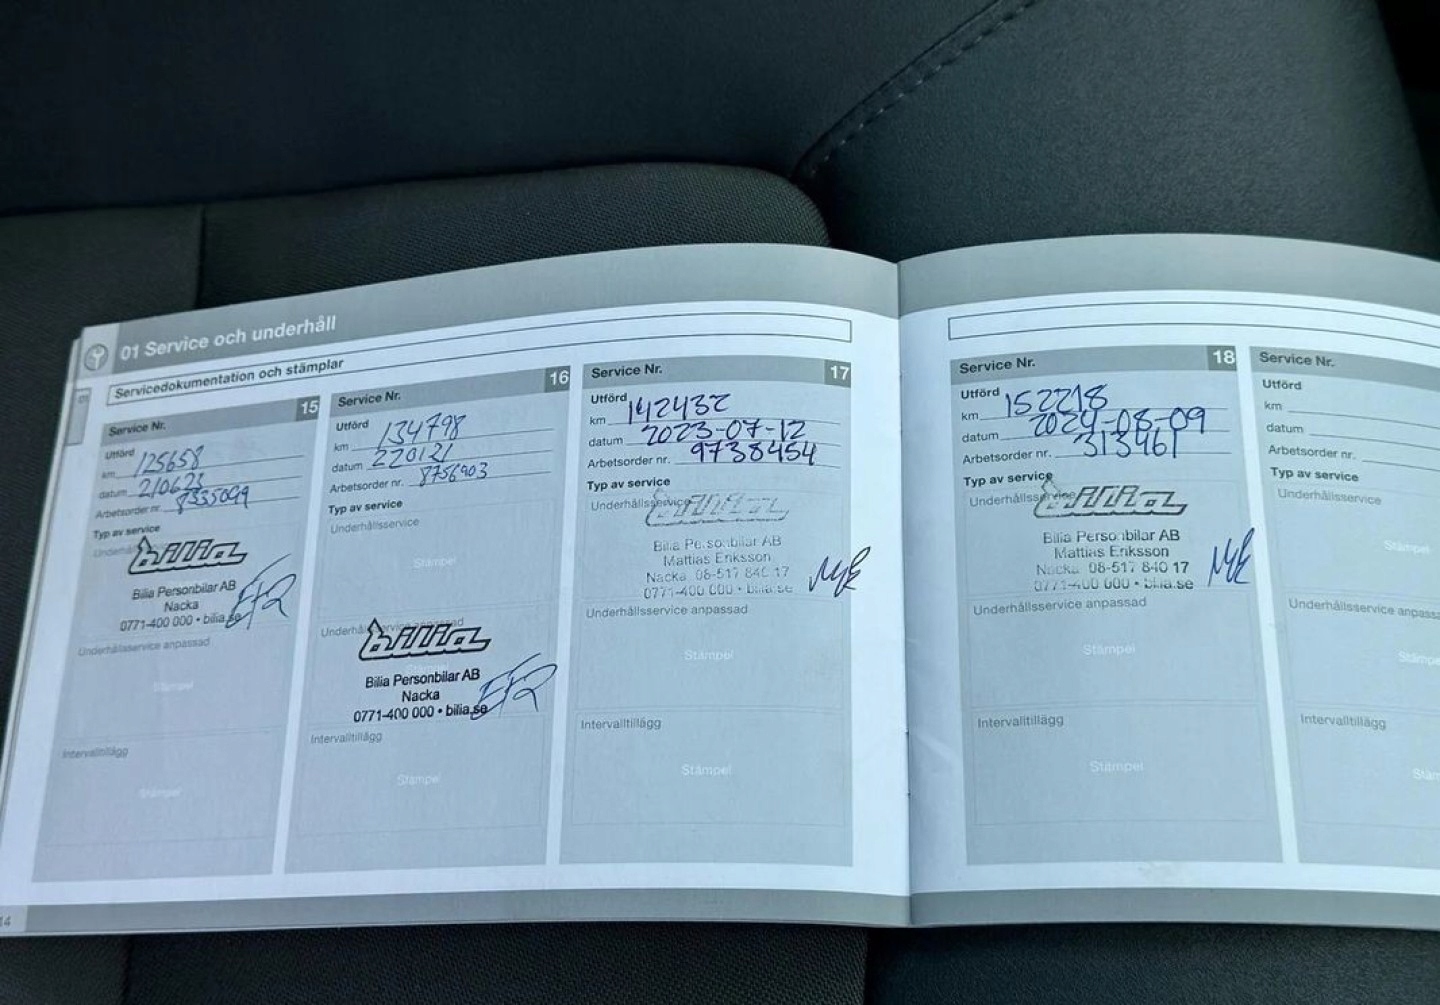 01 Service och underhåll
Servicedokumentation och stämplar
Service Nr. 15
Utförd
km 125658
datum 210623
Arbetsorder nr. 8335099
Typ av service
bilia
Bilia Personbilar AB
Nacka
0771-400 000 • bilia.se
Underhållsservice anpassad
Stämpel
Intervalltillägg
Stämpel
Service Nr. 16
Utförd
km 134798
datum 220121
Arbetsorder nr. 8756903
Typ av service
Underhållsservice
Stämpel
Underhållsservice anpassad
bilia
Bilia Personbilar AB
Nacka
0771-400 000 • bilia.se
Intervalltillägg
Stämpel
Service Nr. 17
Utförd
km 142432
datum 2023-07-12
Arbetsorder nr. 9738454
Typ av service
Underhållsservice
bilia
Bilia Personbilar AB
Mattias Eriksson
Nacka 08-517 840 17
0771-400 000 • bilia.se
Underhållsservice anpassad
Stämpel
Intervalltillägg
Stämpel
Service Nr. 18
Utförd
km 152218
datum 2024-08-09
Arbetsorder nr. 313461
Typ av service
Underhållsservice
bilia
Bilia Personbilar AB
Mattias Eriksson
Nacka 08-517 840 17
0771-400 000 • bilia.se
Underhållsservice anpassad
Stämpel
Intervalltillägg
Stämpel
Service Nr.
Utförd
km
datum
Arbetsorder nr.
Typ av service
Underhållsservice
Intervalltillägg